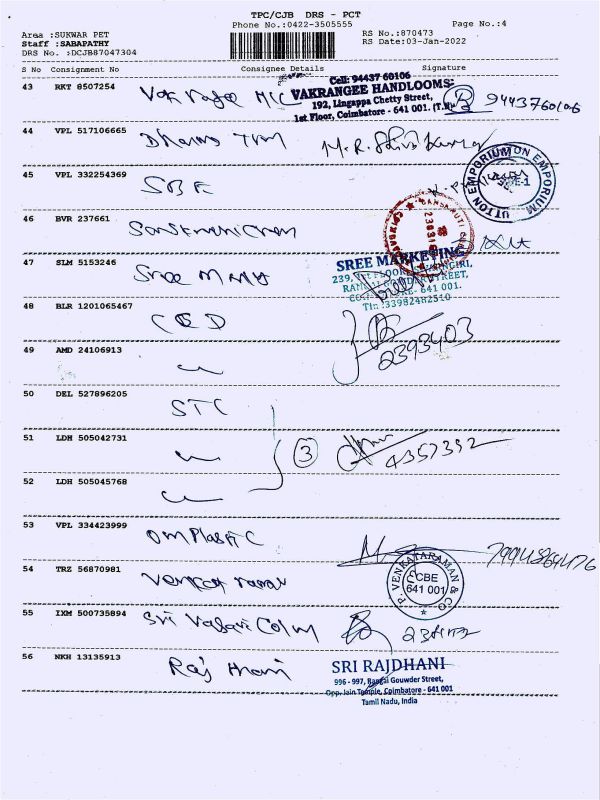 TPC/CJB DRS - PCT
Phone No.:0422-3505555
Page No.:4
Area :SUKWAR PET
Staff :SABAPATHY
DRS No. :DCJB87047304
RS No.:870473
RS Date:03-Jan-2022
S No Consignment No Consignee Details Signature
43 RKT 8507254
Cell: 94437 60106
VAKRANGEE HANDLOOMS
192, Lingappa Chetty Street,
1st Floor, Coimbatore - 641 001. (T.N)
9443760106
44 VPL 517106665 M.R. Shiva Kumar
45 VPL 332254369 SBE
UTTON EMPORIUM
46 BVR 237661
47 SLM 5153246 Sree
SREE MARKETING
239, 1st FLOOR,
STREET,
641 001.
48 BLR 1201065467
2393403
49 AMD 24106913
50 DEL 527896205 STC
51 LDH 505042731 3 4357392
52 LDH 505045768
53 VPL 334423999 Om Plastic
7994864476
54 TRZ 56870981 Venkat raman
P. VENKATARAMAN & CO
CBE
641 001
55 IXM 500735894 Sri
56 NKH 13135913 Raj
SRI RAJDHANI
996 - 997, Rangai Gouwder Street,
Opp. Jain Temple, Coimbatore - 641 001
Tamil Nadu, India